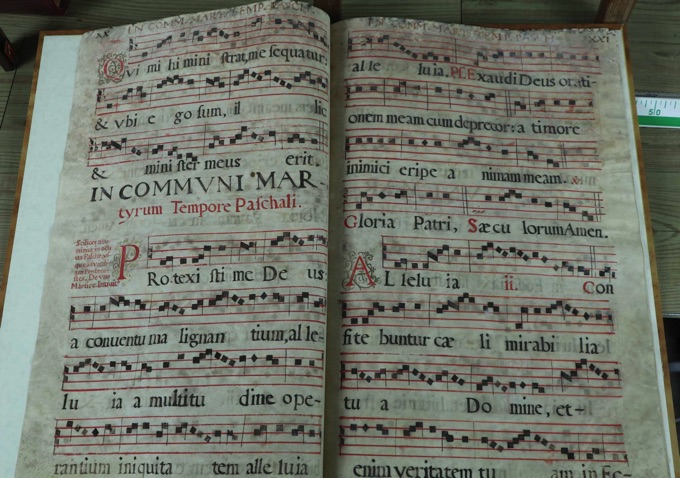 IN COMM. MART. TEMP. PASCH.
Qvi mi hi mini strat, me sequatur:
& vbi e go sum, il lic
& mini ster meus erit.
IN COMMVNI MAR-
tyrum Tempore Paschali.
PRo texi sti me De us
a conuentu ma lignan tium, al le-
lu ia a multitu dine ope-
rantium iniquita tem alle lu ia
XXI
al le lu ia. Ps. Exaudi Deus orati-
onem meam cum deprecor: a timore
inimici eripe a nimam meam.
Gloria Patri, Sæcu lorum Amen.
AL lelu ia ii. Con
fite buntur cæ li mirabi lia
tu a Do mine, et-
enim veritatem tu am in Ec-
50